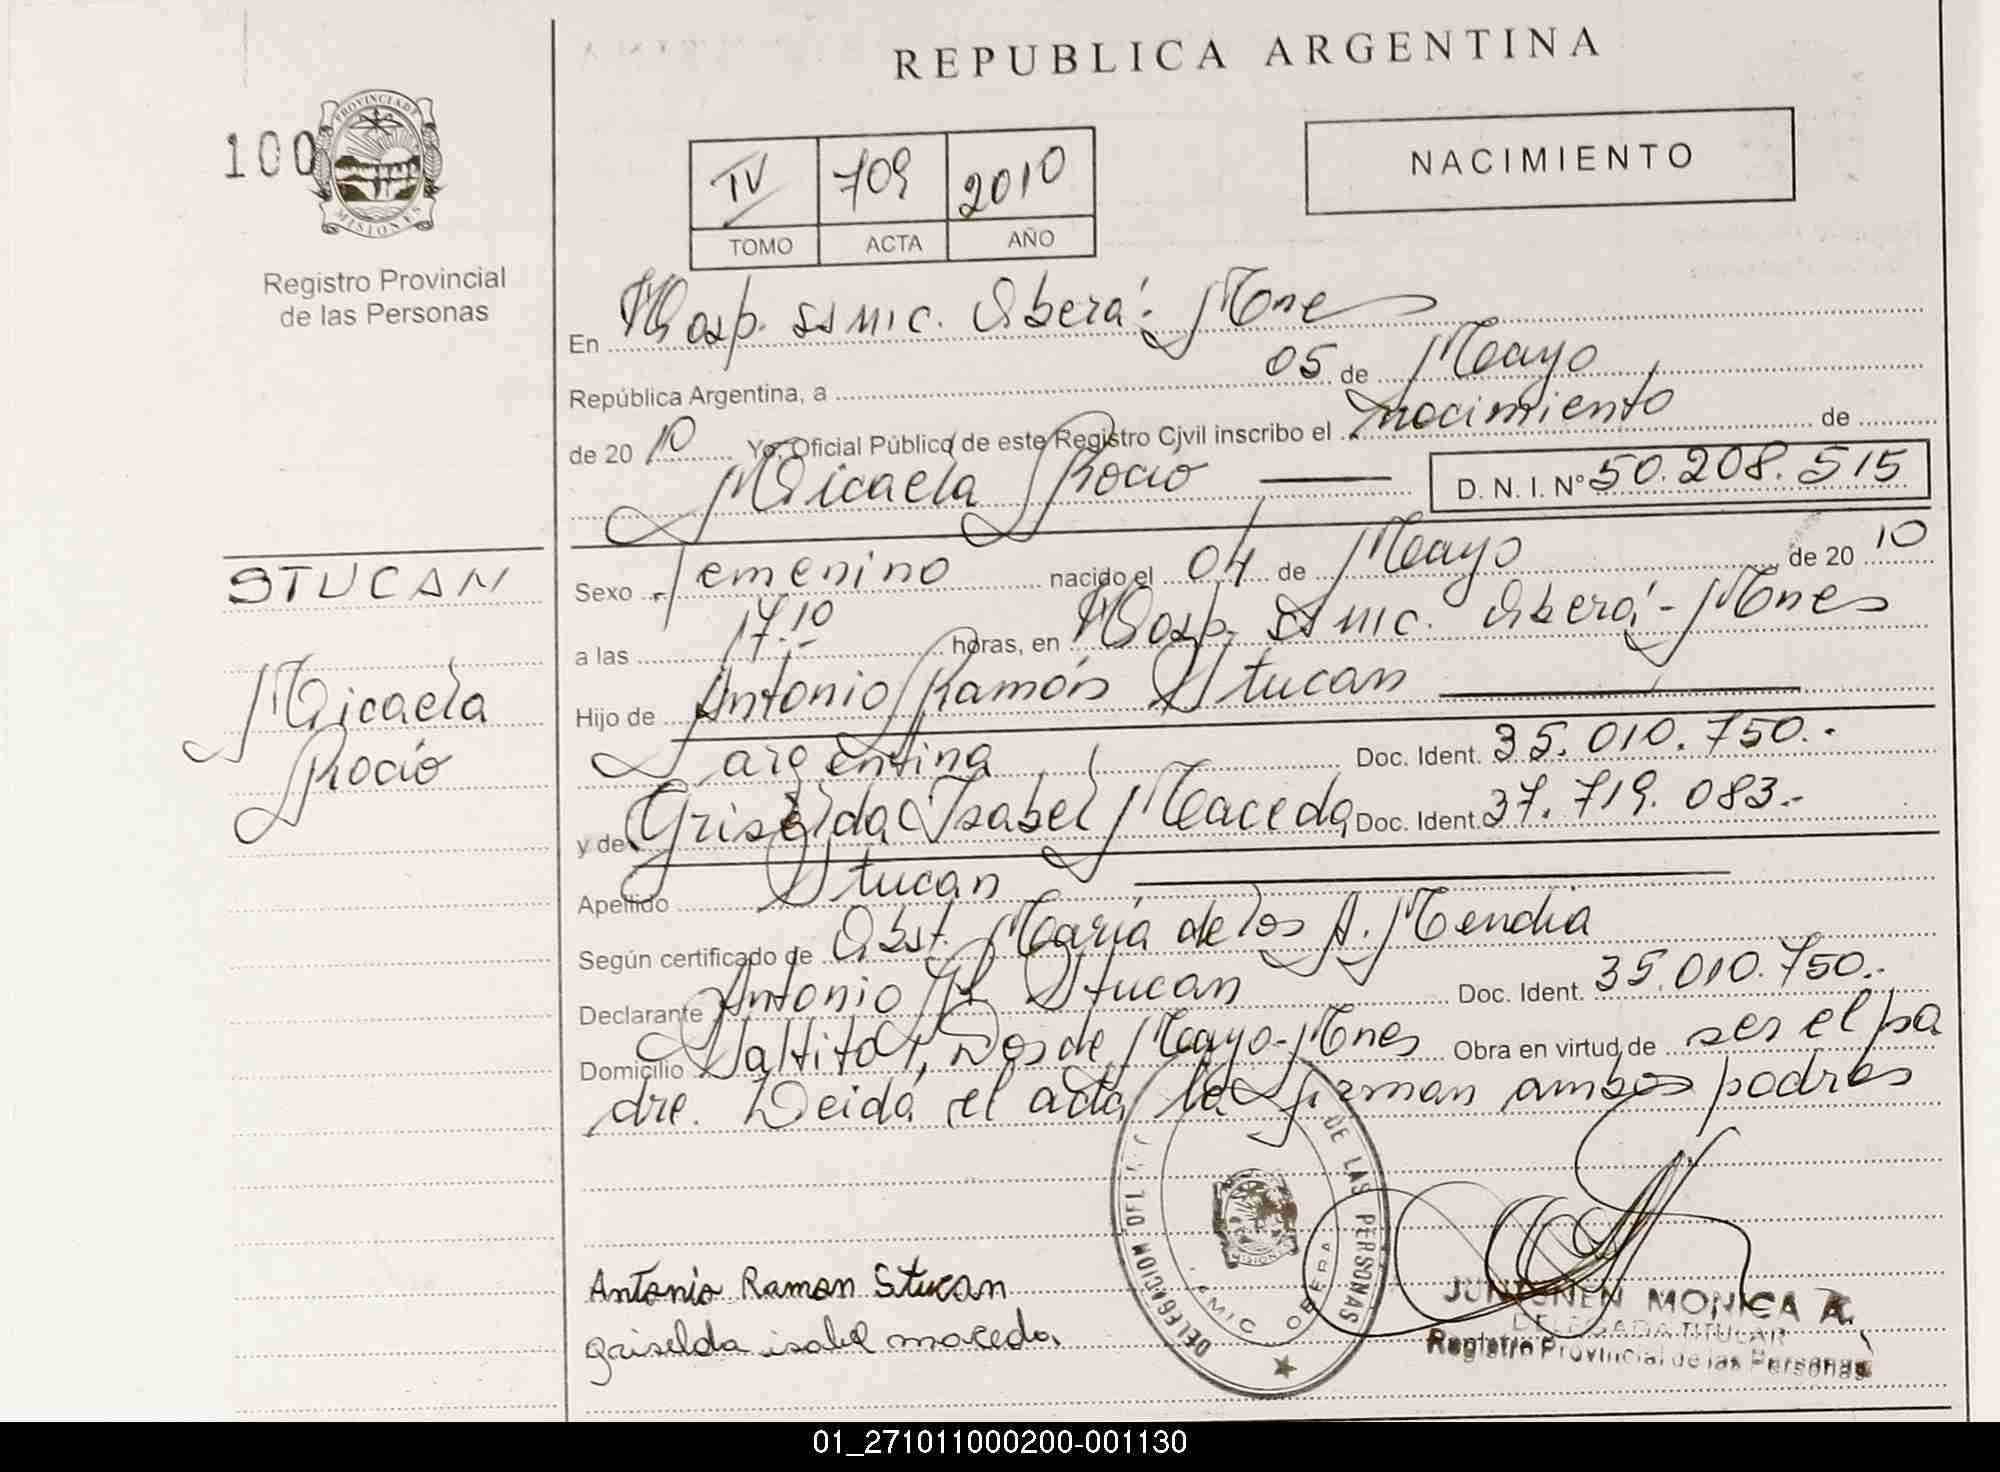 REPUBLICA ARGENTINA
100
PROVINCIA D
MISIONES
Registro Provincial
de las Personas
IV 709 2010
TOMO ACTA AÑO
NACIMIENTO
En Hosp. SAMIC. Oberá - Mnes
República Argentina, a 05 de Mayo
de 2010 Yo, Oficial Público de este Registro Civil inscribo el nacimiento de
Micaela Rocio D. N. I. Nº 50.208.515
STUCAN
Micaela
Rocio
Sexo Femenino nacido el 04 de Mayo de 2010
a las 17.10 horas, en Hosp. SAMIC. Oberá - Mnes
Hijo de Antonio Ramón Stucan
argentina Doc. Ident. 35.010.750.-
y de Griselda Isabel Maceda Doc. Ident. 37.719.083.-
Apellido Stucan
Según certificado de Obst. María de los A. Mendia
Declarante Antonio R. Stucan Doc. Ident. 35.010.750.-
Domicilio Saltito 1, Dos de Mayo - Mnes Obra en virtud de ser el pa
dre. Leida el acta la firman ambos padres
DELEGACION DEL DE LAS PERSONAS
SAMIC OBERA
Antonio Ramon Stucan
griselda isabel maceda
JUNTUNEN MONICA A.
DELEGADA TITULAR
Registro Provincial de las Personas
01_271011000200-001130